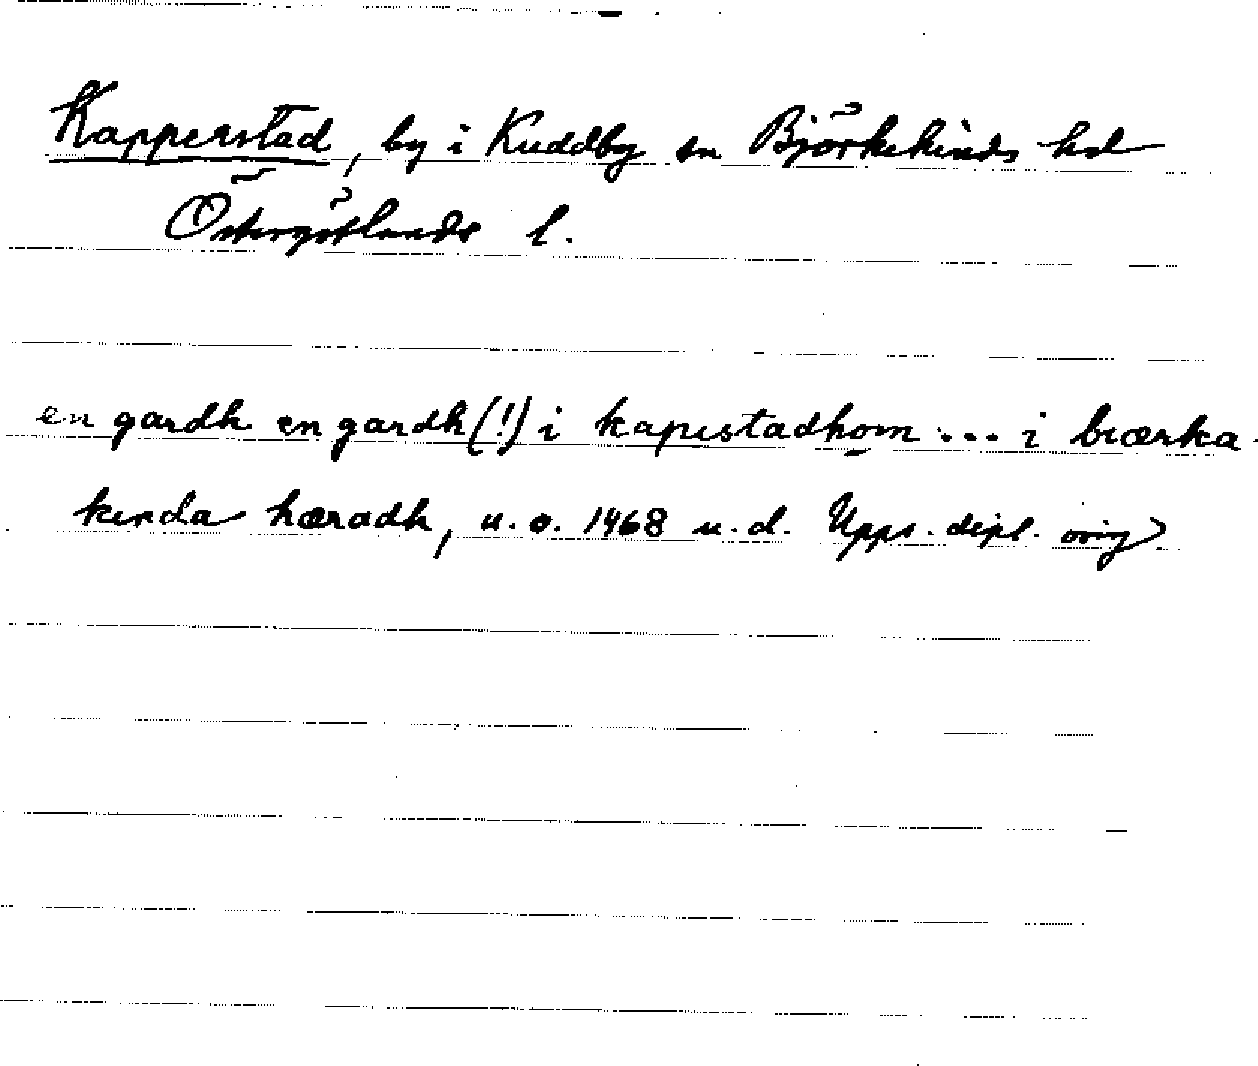 Kapperstad, by i Kuddby sn Björkekinds hd
Östergötlands l.
en gardh en gardh(!) i kapestadhom... i biærka-
kinda hæradh, u.o. 1468 u.d. Upps. dipl. orig